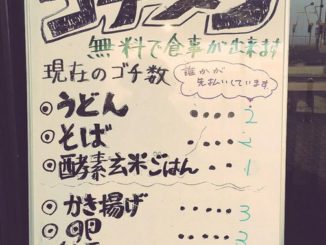 ゴチメシ
無料で食事が出来ます
現在のゴチ数
誰かが
先払いしています
◎うどん ‥‥ 2
◎そば ‥‥‥ 2
◎酵素玄米ごはん‥ 1
◎かき揚げ ‥‥‥ 3
◎卵 ‥‥‥ 3